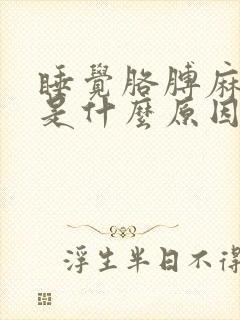 睡覺胳膊麻
是什麼原因
浮生半日不得